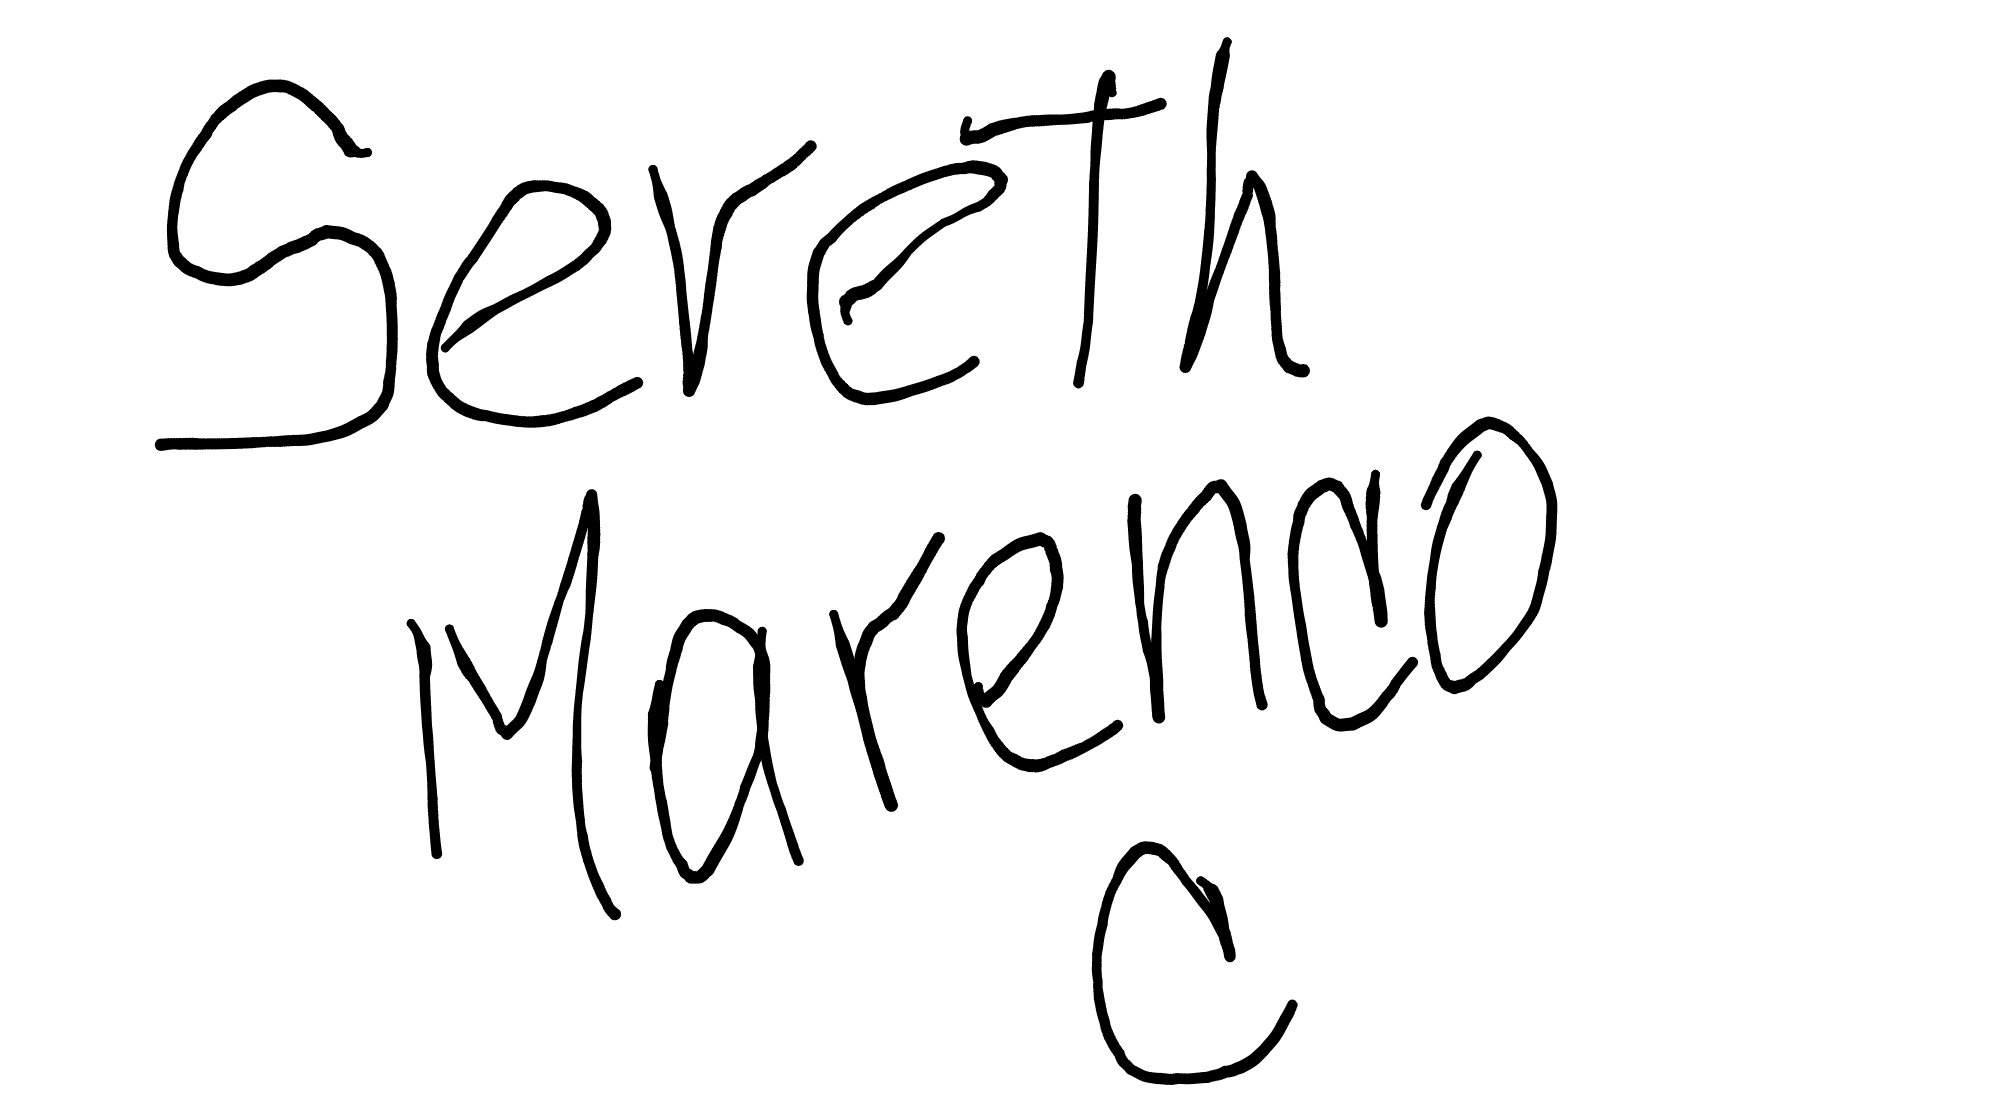 Sereth
Marenco
C